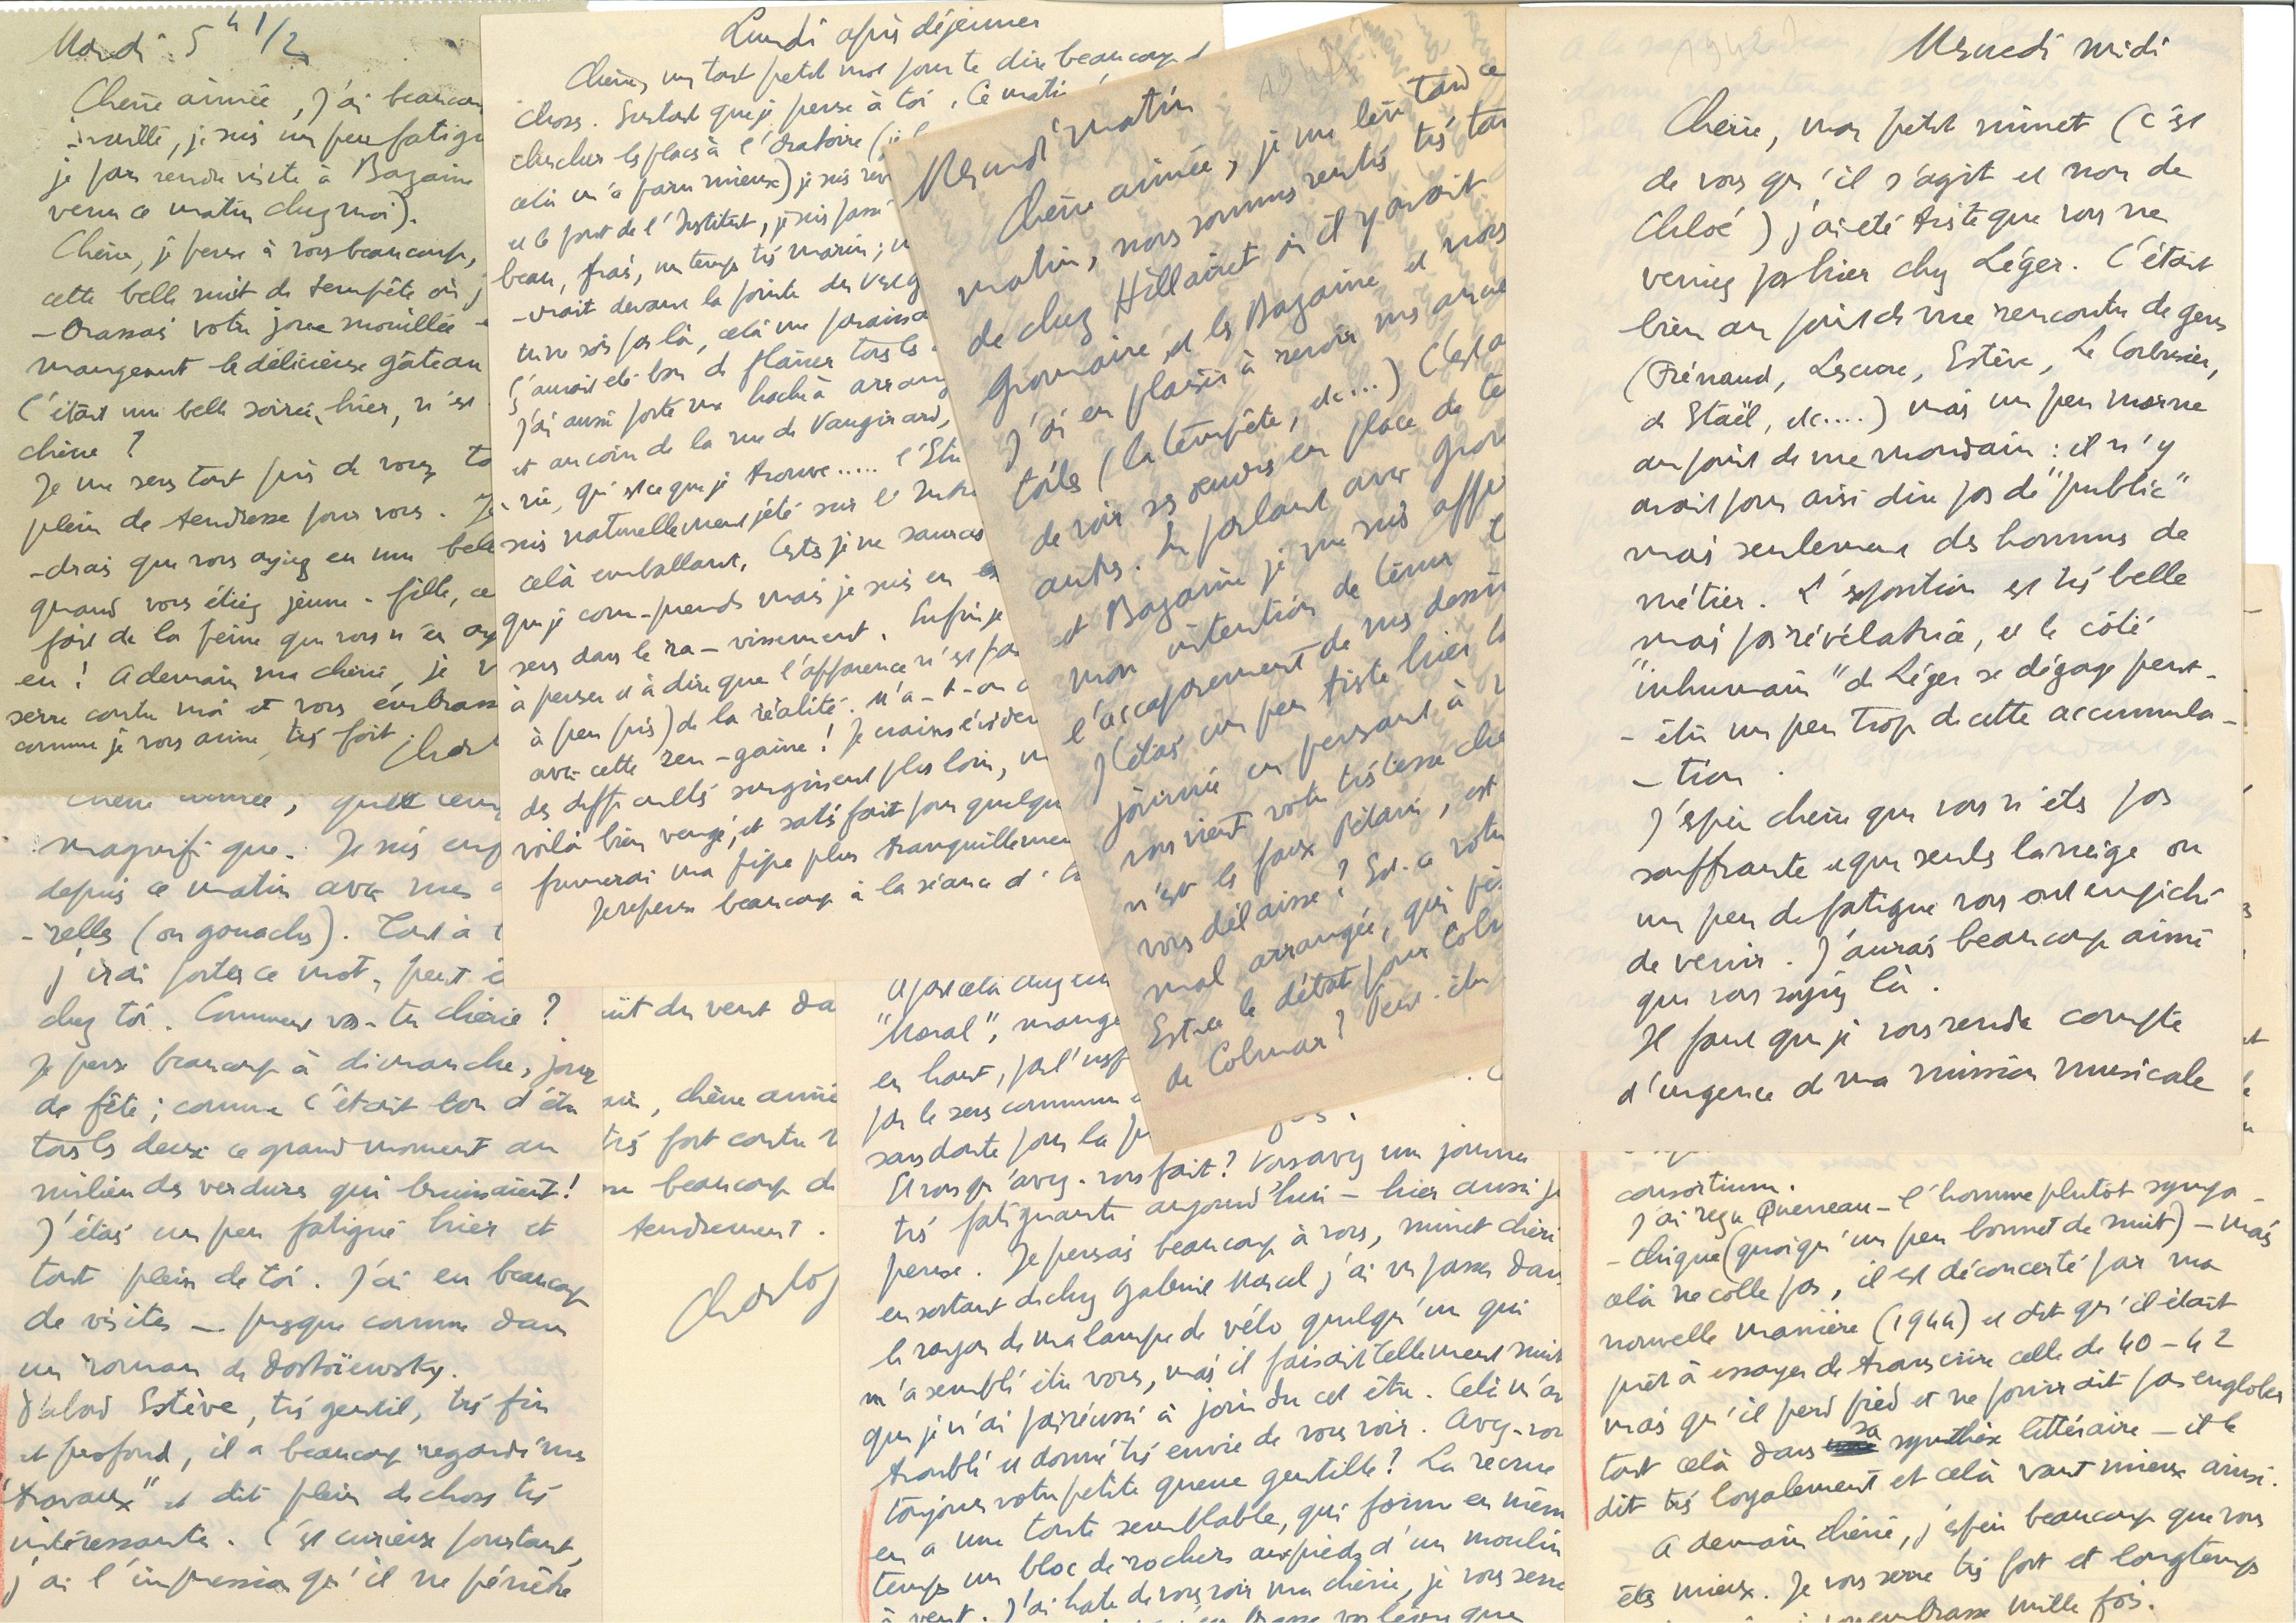 Mardi 5 h 1/2
Chérie aimée, j'ai beaucou
-vaillé, je suis un peu fatigu
je pars rendre visite à Bazaine
venu ce matin chez moi).
Chérie, je pense à vous beaucoup,
cette belle nuit de tempête où j
-brassais votre joue mouillée
mangeant le délicieux gâteau
C'était une belle soirée, hier, n'est
chérie ?
Je me sens tout près de vous, to
plein de tendresse pour vous. Je
-drais que vous ayiez eu une bell
quand vous étiez jeune-fille, ce
fait de la peine que vous n'en ay
eu ! A demain ma chérie, je v
serre contre moi et vous embrass
comme je vous aime, très fort.
Charl
Chérie aimée, quel temp
magnifique. Je suis
depuis ce matin avec mes a
-relles (ou gouaches). Tout à
j'irai porter ce mot, peut ê
chez toi. Comment vas-tu chérie ?
Je pense beaucoup à dimanche, jour
de fête ; comme c'était bon d'être
tous les deux ce grand moment au
milieu des verdures qui bruissaient !
J'étais un peu fatigué hier et
tout plein de toi. J'ai eu beaucoup
de visites — presque comme dans
un roman de Dostoïewsky.
D'abord Estève, très gentil, très fin
et profond, il a beaucoup regardé mes
"travaux" et dit plein de choses très
intéressantes. C'est curieux pourtant,
j'ai l'impression qu'il ne pénètre
Lundi après déjeuner
Chérie, un tout petit mot pour te dire beaucoup d
choses. Surtout que je pense à toi. Ce matin
chercher les places à l'Oratoire (j
cela m'a paru mieux) je suis rev
et le pont de l'Institut, je suis passé
beau, frais, un temps très marin ;
-vrait devant la pointe du Verg
tu ne sois pas là, cela me paraissa
ç'aurait été bon de flâner tous les
J'ai aussi porté ma hache à arrang
et au coin de la rue de Vaugirard,
-rie, qu'est ce que je trouve..... l'Etr
suis naturellement jeté sur l'Intro
cela emballant. Certes je ne saurais
que je com-prends mais je suis en
sens dans le ra-vissement. Enfin je
à penser et à dire que l'apparence n'est pas
à peu près) de la réalité. M'a-t-on
avec cette ren-gaine ! Je crains évidem
des difficultés surgissent plus loin, m
voilà bien vengé, et satisfait pour quelque
fumerai ma pipe plus tranquillemen
Je repense beaucoup à la séance d'
uit du vent da
chérie aimée
très fort contre v
beaucoup de
tendrement.
Charles
Après cela
"Moral", mange
en haut, par l'
par le sens commun
sans doute pour la
Et vous qu'avez-vous fait ? Vous avez une journée
très fatigante aujourd'hui — hier aussi je
pense. Je pensais beaucoup à vous, minet chéri
en sortant de chez Gabriel Marcel j'ai vu passer dans
le rayon de ma lampe de vélo quelqu'un qui
m'a semblé être vous, mais il faisait tellement nuit
que je n'ai pas réussi à joindre cet être. Cela m'a
troublé et donné très envie de vous voir. Avez-vous
toujours votre petite queue gentille ? La recrue
en a une toute semblable, qui forme en même
temps un bloc de rochers aux pieds d'un moulin
à vent. J'ai hâte de vous voir ma chérie, je vous serre
1942
Mercredi matin
Chérie aimée, je me lève tard ce
matin, nous sommes rentrés très tar
de chez Hillairet où il y avait
Gromaire et les Bazaine et nous
J'ai eu plaisir à revoir mes ancie
toiles (la tempête, etc...) C'est a
de voir ses oeuvres en place de te
autre. En parlant avec Grom
et Bazaine je me suis aff
mon intention de tenir
l'accaparement de mes dessin
J'étais un peu triste hier
journée en pensant à v
vous vient votre tristesse ché
n'est le faux Pétain, est
vous délaisse ? Est-ce votre
mal arrangée, qui
Est-ce le départ pour Colm
de Colmar ? Peut-être
1942
Mercredi midi
Chérie, mon petit minet (c'est
de vous qu'il s'agit et non de
Chloé) j'ai été triste que vous ne
veniez pas hier chez Léger. C'était
bien au point de vue rencontre de gens
(Frénaud, Lescure, Estève, Le Corbusier,
de Staël, etc....) mais un peu morne
au point de vue mondain : il n'y
avait pour ainsi dire pas de "public"
mais seulement des hommes de
métier. L'exposition est très belle
mais pas révélatrice, et le côté
"inhumain" de Léger se dégage peut-
-être un peu trop de cette accumula-
-tion.
J'espère chérie que vous n'êtes pas
souffrante et que seuls la neige ou
un peu de fatigue vous ont empêché
de venir. J'aurais beaucoup aimé
que vous soyiez là.
Il faut que je vous rende compte
d'urgence de ma mission musicale
consortium.
J'ai reçu Queneau — l'homme plutôt sympa-
-thique (quoiqu'un peu bonnet de nuit) — mais
cela ne colle pas, il est déconcerté par ma
nouvelle manière (1944) et dit qu'il était
prêt à essayer de transcrire celle de 40-42
mais qu'il perd pied et ne pourrait pas englober
tout cela dans sa synthèse littéraire — il le
dit très loyalement et cela vaut mieux ainsi.
A demain chérie, j'espère beaucoup que vous
êtes mieux. Je vous serre très fort et longtemps
embrasse mille fois.